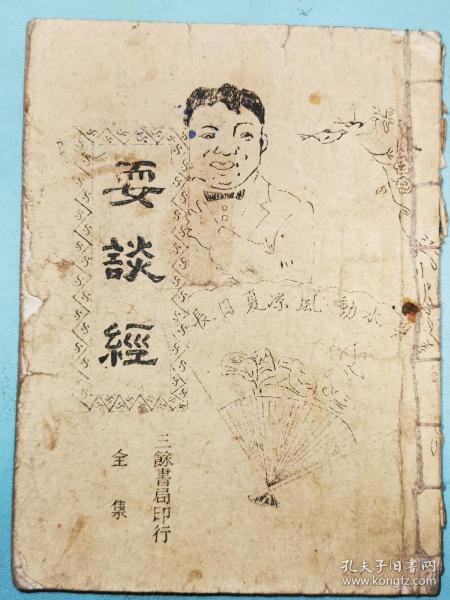 耍談經
水動風涼夏日長
三餘書局印行
全集
孔夫子旧书网
www.kongfz.com